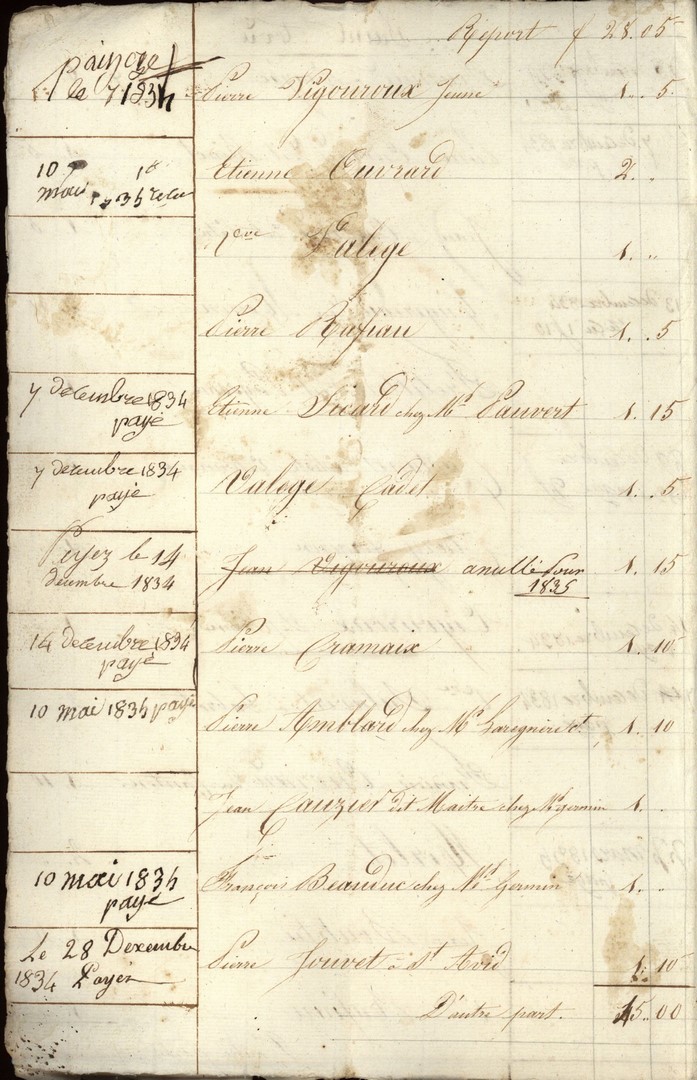 Report f 28.05
payé
le 7 1834
Pierre Vigouroux Jeune 1. 5
10 1d
mai 1835 reçu
Etienne Ouvrard 2. .
Veuve Valege 1. "
Pierre 1. 5
7 decembre 1834
payé
Etienne Sicard chez Mr. Pauvert 1. 15
7 decembre 1834
payé
Valege Cadet 1. 5
Payez le 14
decembre 1834
Jean Vigouroux anullé pour 1. 15
1835
14 decembre 1834
payé
Pierre Cramaix 1. 10
10 mai 1835 payé
Pierre Amblard chez Mr. Laregnere ct. 1. 10
Jean Cauzier dit Maitre chez Mr. Germin 1. .
10 mai 1835
payé
François Beauduc chez Mr. Germin 1. "
Le 28 Dexembre
1834 Payér
Pierre Jouvet à St Avid 1. 10
D'autre part. 45.. 00